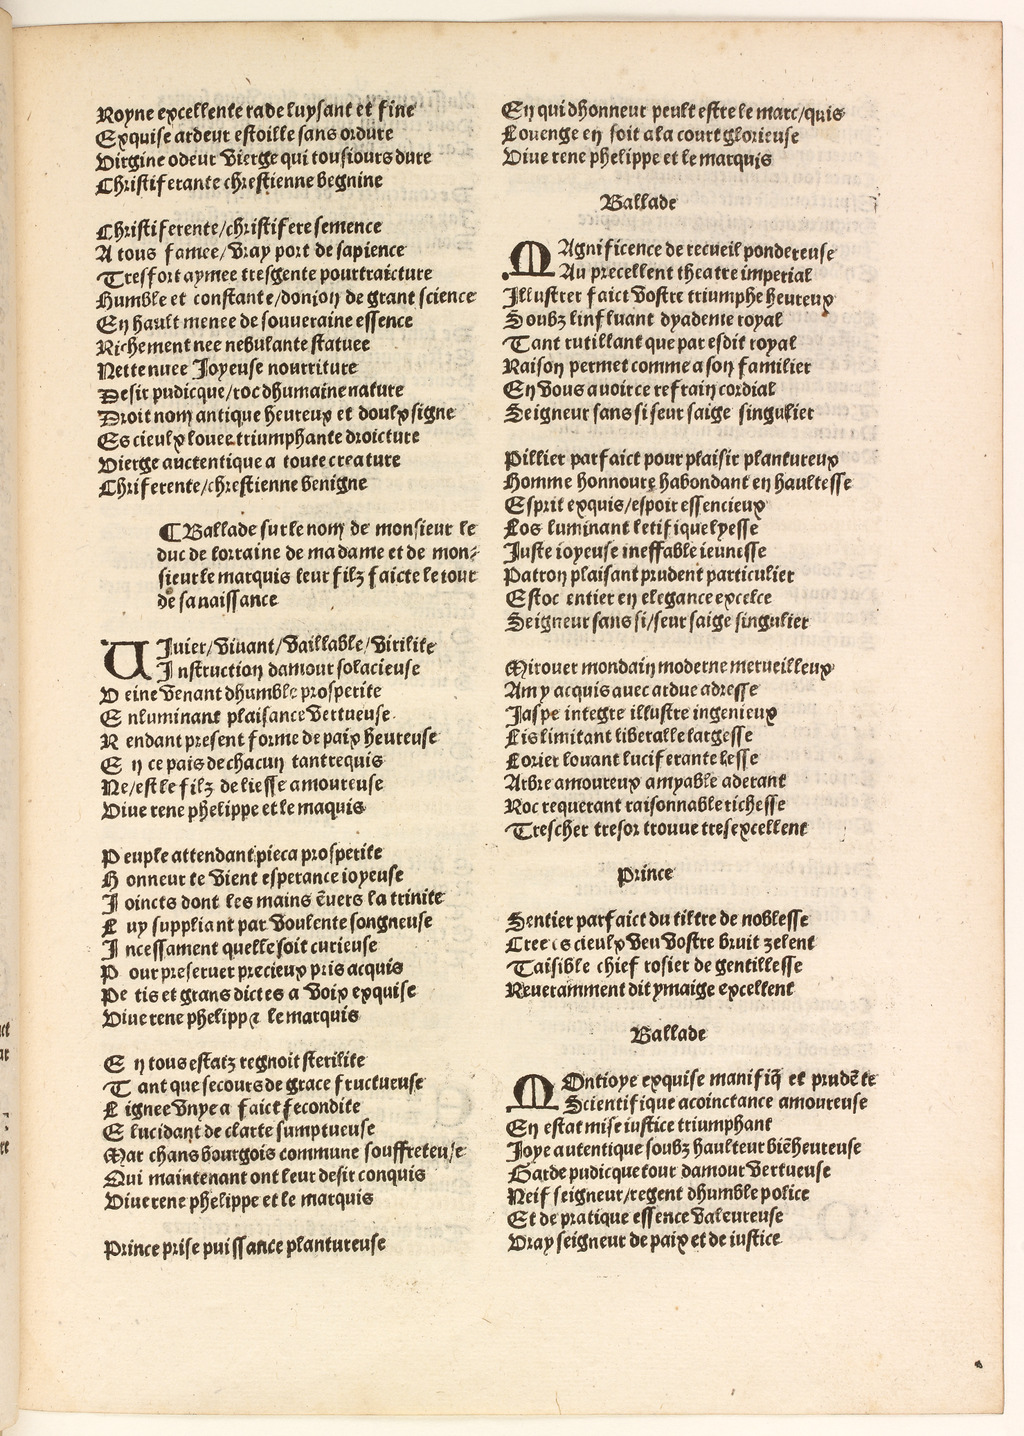 Royne excellente rade luysant et fine
Exquise ardeur estoille sans ordure
Virgine odeur Vierge qui tousiours dure
Christiferante chrestienne begnine
Christiferente/christifere semence
A tous famee/Vray port de sapience
Tresfort aymee tresgente pourtraicture
Humble et constante/donion de grant science
En hault menee de souueraine essence
Richement nee nebulante statuee
Nette nuee Joyeuse nourriture
Desir pudicque/roc dhumaine nature
Droit nom antique heureux et doulx signe
Es cieulx louee triumphante droicture
Vierge auctentique a toute creature
Chriferente/chrestienne benigne
¶Ballade sur le nom de monsieur le
duc de lorraine de ma dame et de mon-
sieur le marquis leur filz faicte le iour
de sa naissance
VIuier/Viuant/Vaillable/Virilite
Instruction damour solacieuse
V eine Venant dhumble prosperite
E nluminant plaisance Vertueuse
R endant present forme de paix heureuse
E n ce pais de chacun tant requis
Ne/est le filz de liesse amoureuse
Viue rene phelippe et le maquis
P euple attendant pieca prosperite
H onneur te Vient esperance ioyeuse
J oincts dont les mains ēuers la trinite
L uy suppliant par Voulente songneuse
I ncessament quelle soit curieuse
P our preseruer precieux pris acquis
Pe tis et grans dictes a Voix exquise
Viue rene phelipp & le marquis
E n tous estatz regnoit sterilite
T ant que secours de grace fructueuse
L ignee Vnye a faict fecondite
E lucidant de clarte sumptueuse
Mar chans bourgois commune souffreteuse
Qui maintenant ont leur desir conquis
Viue rene phelippe et le marquis
Prince prise puissance plantureuse
En qui dhonneur peult estre le marc/quis
Louenge en soit a la court glorieuse
Viue rene phelippe et le marquis
Ballade
MAgnificence de recueil pondereuse
Au precellent theatre imperial
Illustrer faict Vostre triumphe heureux
Soubz linfluant dyademe royal
Tant rutillant que par esdit royal
Raison permet comme a son familier
En Vous auoir ce refrain cordial
Seigneur sans si seur saige singulier
Pillier parfaict pour plaisir plantureux
Homme honnoure habondant en haultesse
Esprit exquis/espoir essencieux
Los luminant letifique lyesse
Juste ioyeuse ineffable ieunesse
Patron plaisant prudent particulier
Estoc entier en elegance excelce
Seigneur sans si/seur saige singulier
Mirouer mondain moderne merueilleux
Amy acquis auec ardue adresse
Jaspe integre illustre ingenieux
Lis limitant liberalle largesse
Lorier louant luciferante lesse
Arbre amoureux amyable aderant
Roc requerant raisonnable richesse
Trescher tresor trouue tresexcellent
Prince
Sentier parfaict du tiltre de noblesse
Cree es cieulx Veu Vostre bruit zelent
Taisible chief rosier de gentillesse
Reueramment dit ymaige excellent
Ballade
MOntioye exquise manifiq̄ et prudēte
Scientifique acoinctance amoureuse
En estat mise iustice triumphant
Joye autentique soubz haulteur biēheureuse
Garde pudicque tour damour Vertueuse
Neif seigneur/regent dhumble police
Et de pratique essence Valeureuse
Vray seigneur de paix et de iustice